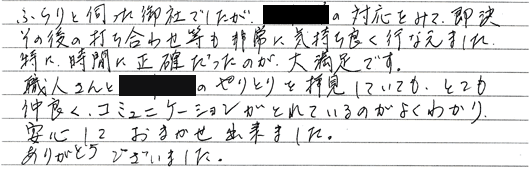 ふらりと伺った御社でしたが、の対応をみて、即決
その後の打ち合わせ等も非常に気持ち良く行なえました。
特に、時間に正確だったのが、大満足です。
職人さんとのやりとりを拝見していても、とても
仲良く、コミュニケーションがとれているのがよくわかり、
安心して おまかせ出来ました。
ありがとうございました。